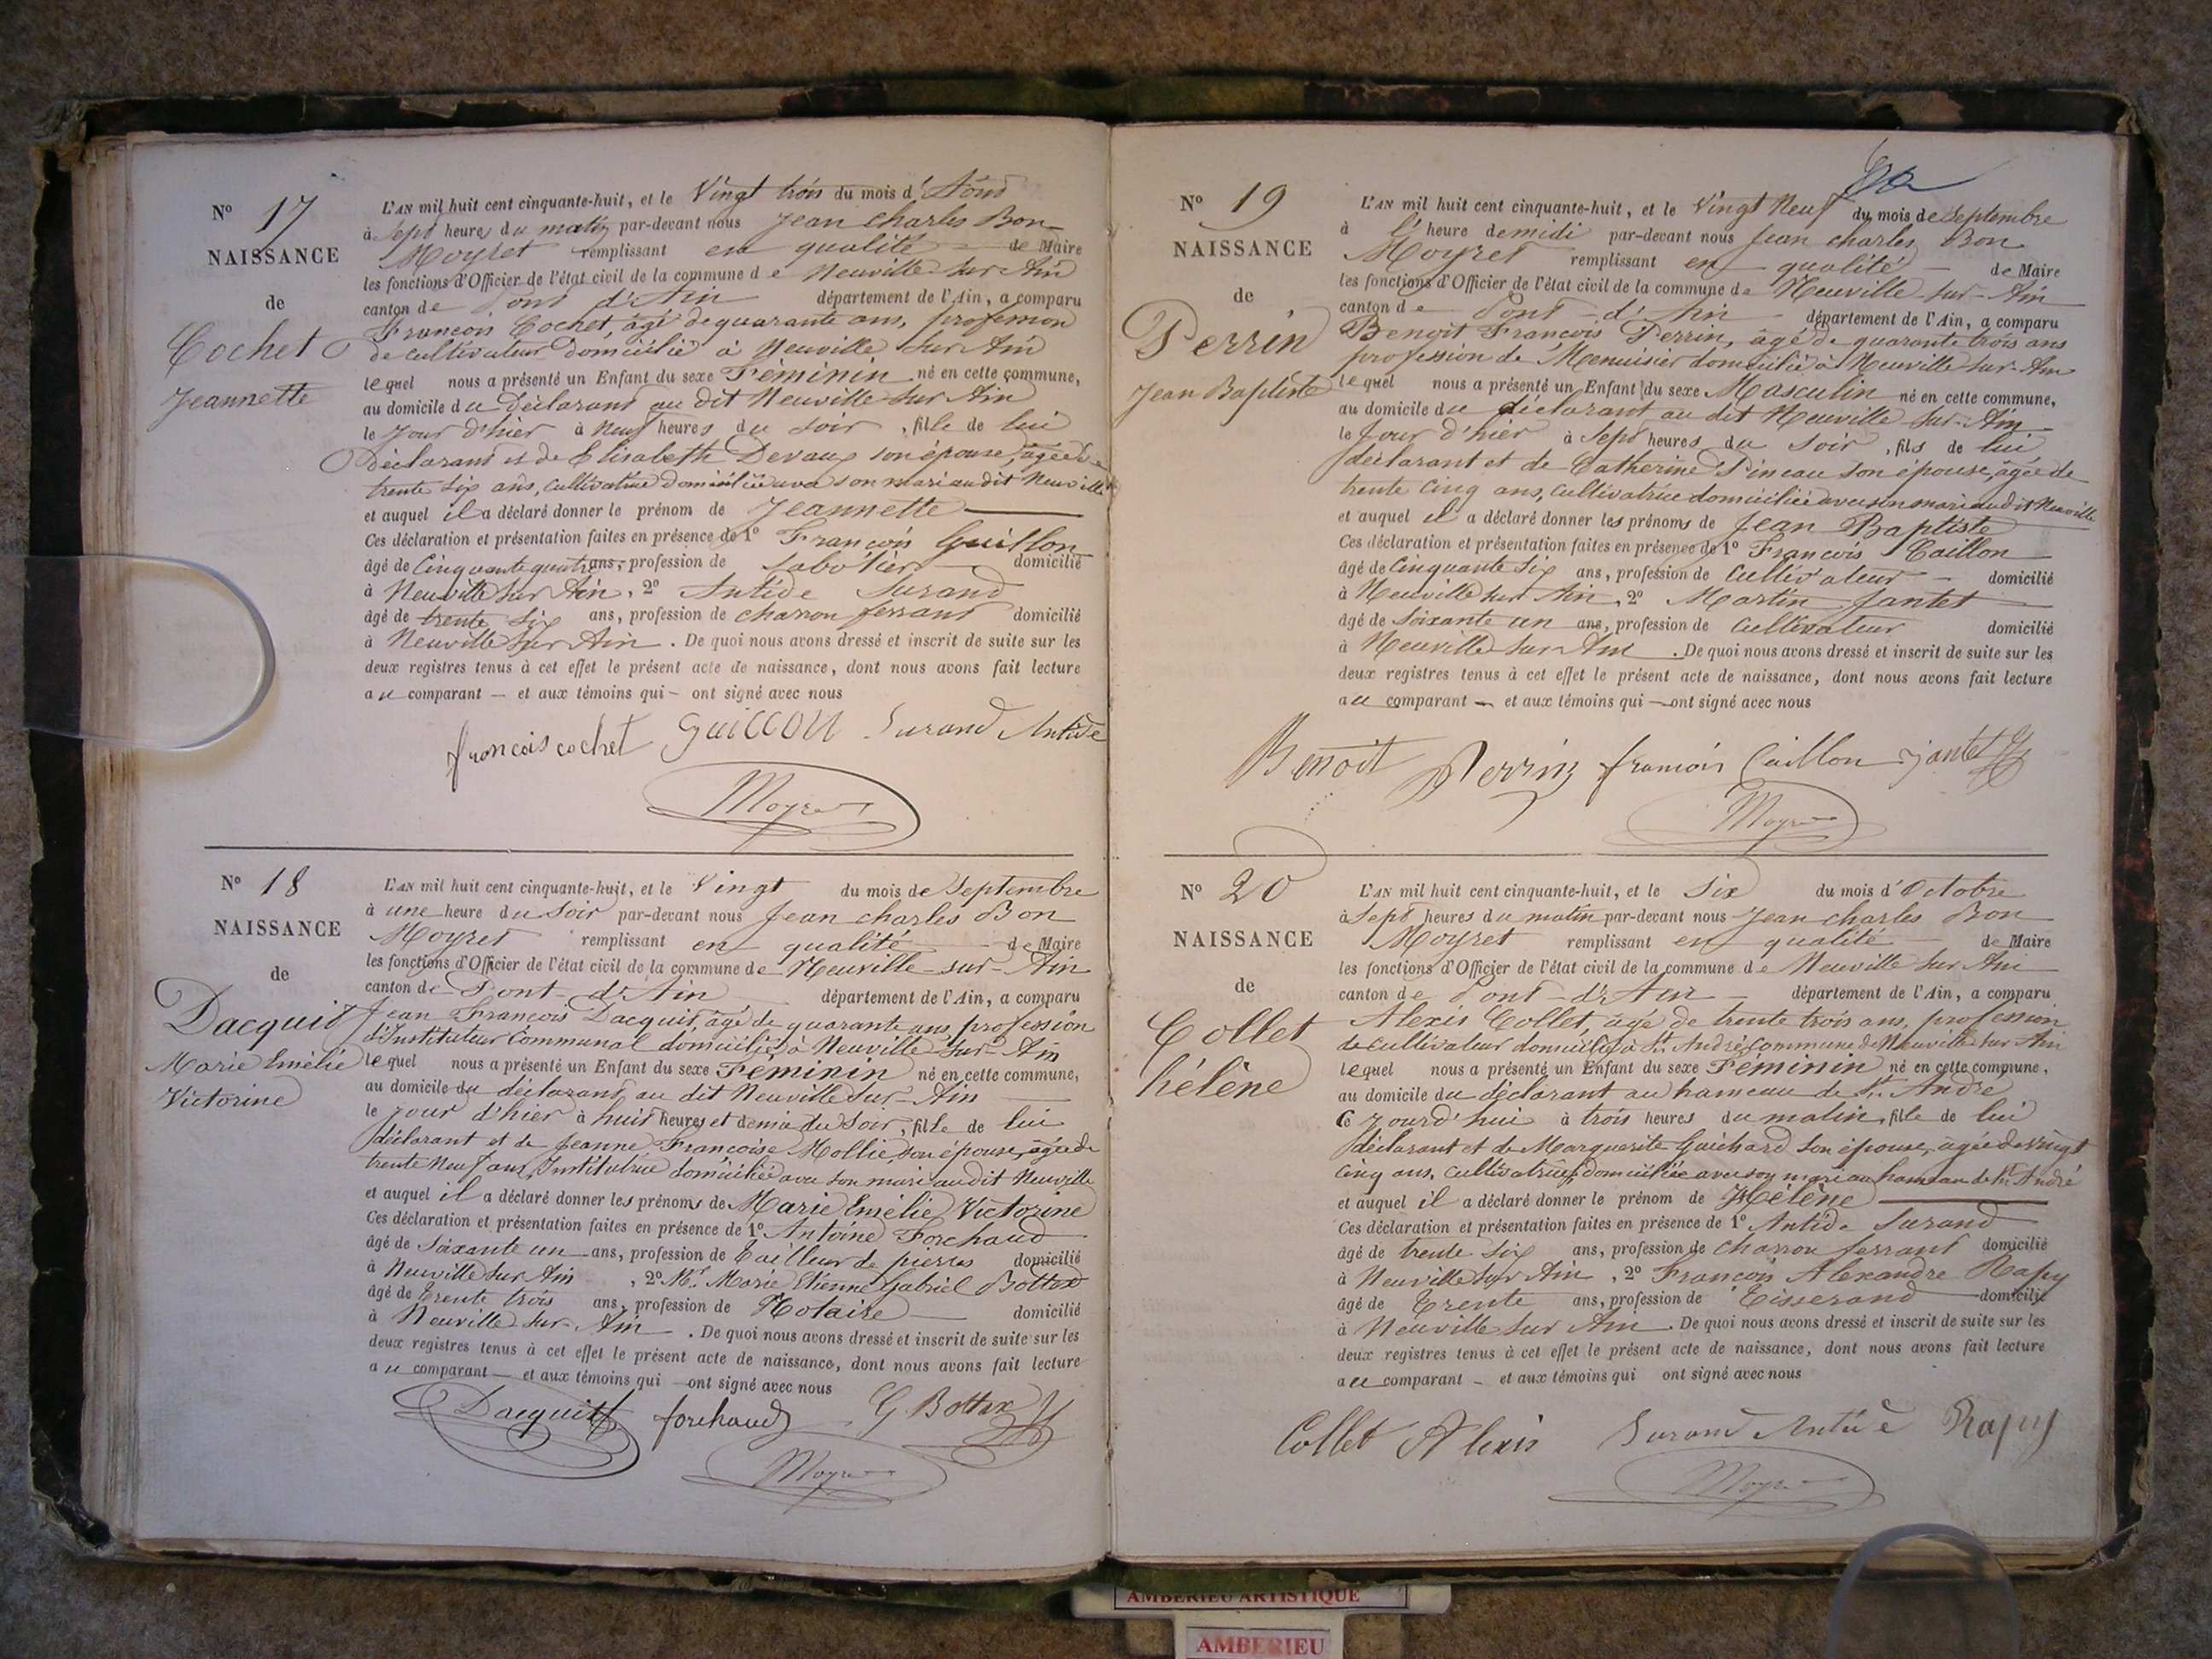 N° 17
NAISSANCE
de
Cochet
Jeannette
L'AN mil huit cent cinquante-huit, et le Vingt trois du mois d'Aôut
à Sept heures du matin par-devant nous Jean Charles Bon
Moyret remplissant en qualité de Maire
les fonctions d'Officier de l'état civil de la commune de Neuville sur Ain
canton de Pont d'Ain département de l'Ain, a comparu
François Cochet, âgé de quarante ans, profession
de cultivateur domicilié à Neuville sur Ain
lequel nous a présenté un Enfant du sexe Féminin né en cette commune,
au domicile du déclarant au dit Neuville sur Ain
le jour d'hier à Neuf heures du soir, fille de lui
déclarant et de Elisabeth Devaux son épouse, âgée de
trente six ans, cultivatrice domiciliée avec son mari au dit Neuville
et auquel il a déclaré donner le prénom de Jeannette
Ces déclaration et présentation faites en présence de 1° François Guillon
âgé de Cinquante quatre ans, profession de Sabotier domicilié
à Neuville sur Ain, 2° Antide Surand
âgé de trente six ans, profession de charron ferrant domicilié
à Neuville sur Ain. De quoi nous avons dressé et inscrit de suite sur les
deux registres tenus à cet effet le présent acte de naissance, dont nous avons fait lecture
au comparant — et aux témoins qui — ont signé avec nous
francois cochet Guillon Surand Antide
Moyret
N° 18
NAISSANCE
de
Dacquit
Marie Emélie
Victorine
L'AN mil huit cent cinquante-huit, et le Vingt du mois de Septembre
à une heure du Soir par-devant nous Jean charles Bon
Moyret remplissant en qualité de Maire
les fonctions d'Officier de l'état civil de la commune de Neuville sur Ain
canton de Pont d'Ain département de l'Ain, a comparu
Jean François Dacquit, âgé de quarante ans, profession
d'Instituteur Communal domicilié à Neuville sur Ain
lequel nous a présenté un Enfant du sexe Féminin né en cette commune,
au domicile du déclarant au dit Neuville sur Ain
le jour d'hier à huit heures et demie du Soir, fille de lui
déclarant et de Jeanne Françoise Mollie, son épouse, âgée de
trente Neuf ans, Institutrice domiciliée avec son mari au dit Neuville
et auquel il a déclaré donner les prénoms de Marie Emélie Victorine
Ces déclaration et présentation faites en présence de 1° Antoine Forchaud
âgé de Soixante un ans, profession de Tailleur de pierres domicilié
à Neuville sur Ain, 2° Mr. Marie Etienne Gabriel Bottex
âgé de trente trois ans, profession de Notaire domicilié
à Neuville sur Ain. De quoi nous avons dressé et inscrit de suite sur les
deux registres tenus à cet effet le présent acte de naissance, dont nous avons fait lecture
au comparant — et aux témoins qui — ont signé avec nous
Dacquit forchaud G. Bottex
Moyret
N° 19
NAISSANCE
de
Perrin
Jean Baptiste
L'AN mil huit cent cinquante-huit, et le Vingt Neuf du mois de Septembre
à l'heure de midi par-devant nous Jean charles Bon
Moyret remplissant en qualité de Maire
les fonctions d'Officier de l'état civil de la commune de Neuville sur Ain
canton de Pont d'Ain département de l'Ain, a comparu
Benoit François Perrin, âgé de quarante trois ans
profession de Menuisier domicilié à Neuville sur Ain
lequel nous a présenté un Enfant du sexe Masculin né en cette commune,
au domicile du déclarant au dit Neuville sur Ain
le Jour d'hier à Sept heures du soir, fils de lui
déclarant et de Catherine Pineau son épouse, âgée de
trente cinq ans, cultivatrice domiciliée avec son mari au dit Neuville
et auquel il a déclaré donner les prénoms de Jean Baptiste
Ces déclaration et présentation faites en présence de 1° François Caillon
âgé de Cinquante Six ans, profession de Cultivateur domicilié
à Neuville sur Ain, 2° Martin Jantet
âgé de Soixante un ans, profession de Cultivateur domicilié
à Neuville sur Ain. De quoi nous avons dressé et inscrit de suite sur les
deux registres tenus à cet effet le présent acte de naissance, dont nous avons fait lecture
au comparant — et aux témoins qui — ont signé avec nous
Benoit Perrin francois Caillon jantet
Moyret
N° 20
NAISSANCE
de
Collet
hélène
L'AN mil huit cent cinquante-huit, et le Six du mois d'Octobre
à Sept heures du matin par-devant nous Jean charles Bon
Moyret remplissant en qualité de Maire
les fonctions d'Officier de l'état civil de la commune de Neuville sur Ain
canton de Pont d'Ain département de l'Ain, a comparu
Alexis Collet, âgé de trente trois ans, profession
de cultivateur domicilié à St. André, commune de Neuville sur Ain
lequel nous a présenté un Enfant du sexe Féminin né en cette commune,
au domicile du déclarant au hameau de St. André
Cejourd'hui à trois heures du matin, fille de lui
déclarant et de Marguerite Guichard son épouse, agée de vingt
cinq ans, cultivatrice, domiciliée avec son mari au hameau de St. André
et auquel il a déclaré donner le prénom de Hélène
Ces déclaration et présentation faites en présence de 1° Antide Surand
âgé de trente six ans, profession de charron ferrant domicilié
à Neuville sur Ain, 2° François Alexandre Rapy
âgé de Trente ans, profession de Tisserand domicilié
à Neuville sur Ain. De quoi nous avons dressé et inscrit de suite sur les
deux registres tenus à cet effet le présent acte de naissance, dont nous avons fait lecture
au comparant — et aux témoins qui ont signé avec nous
Collet Alexis Surand Antide Rapy
Moyret
AMBERIEU ARTISTIQUE
AMBERIEU